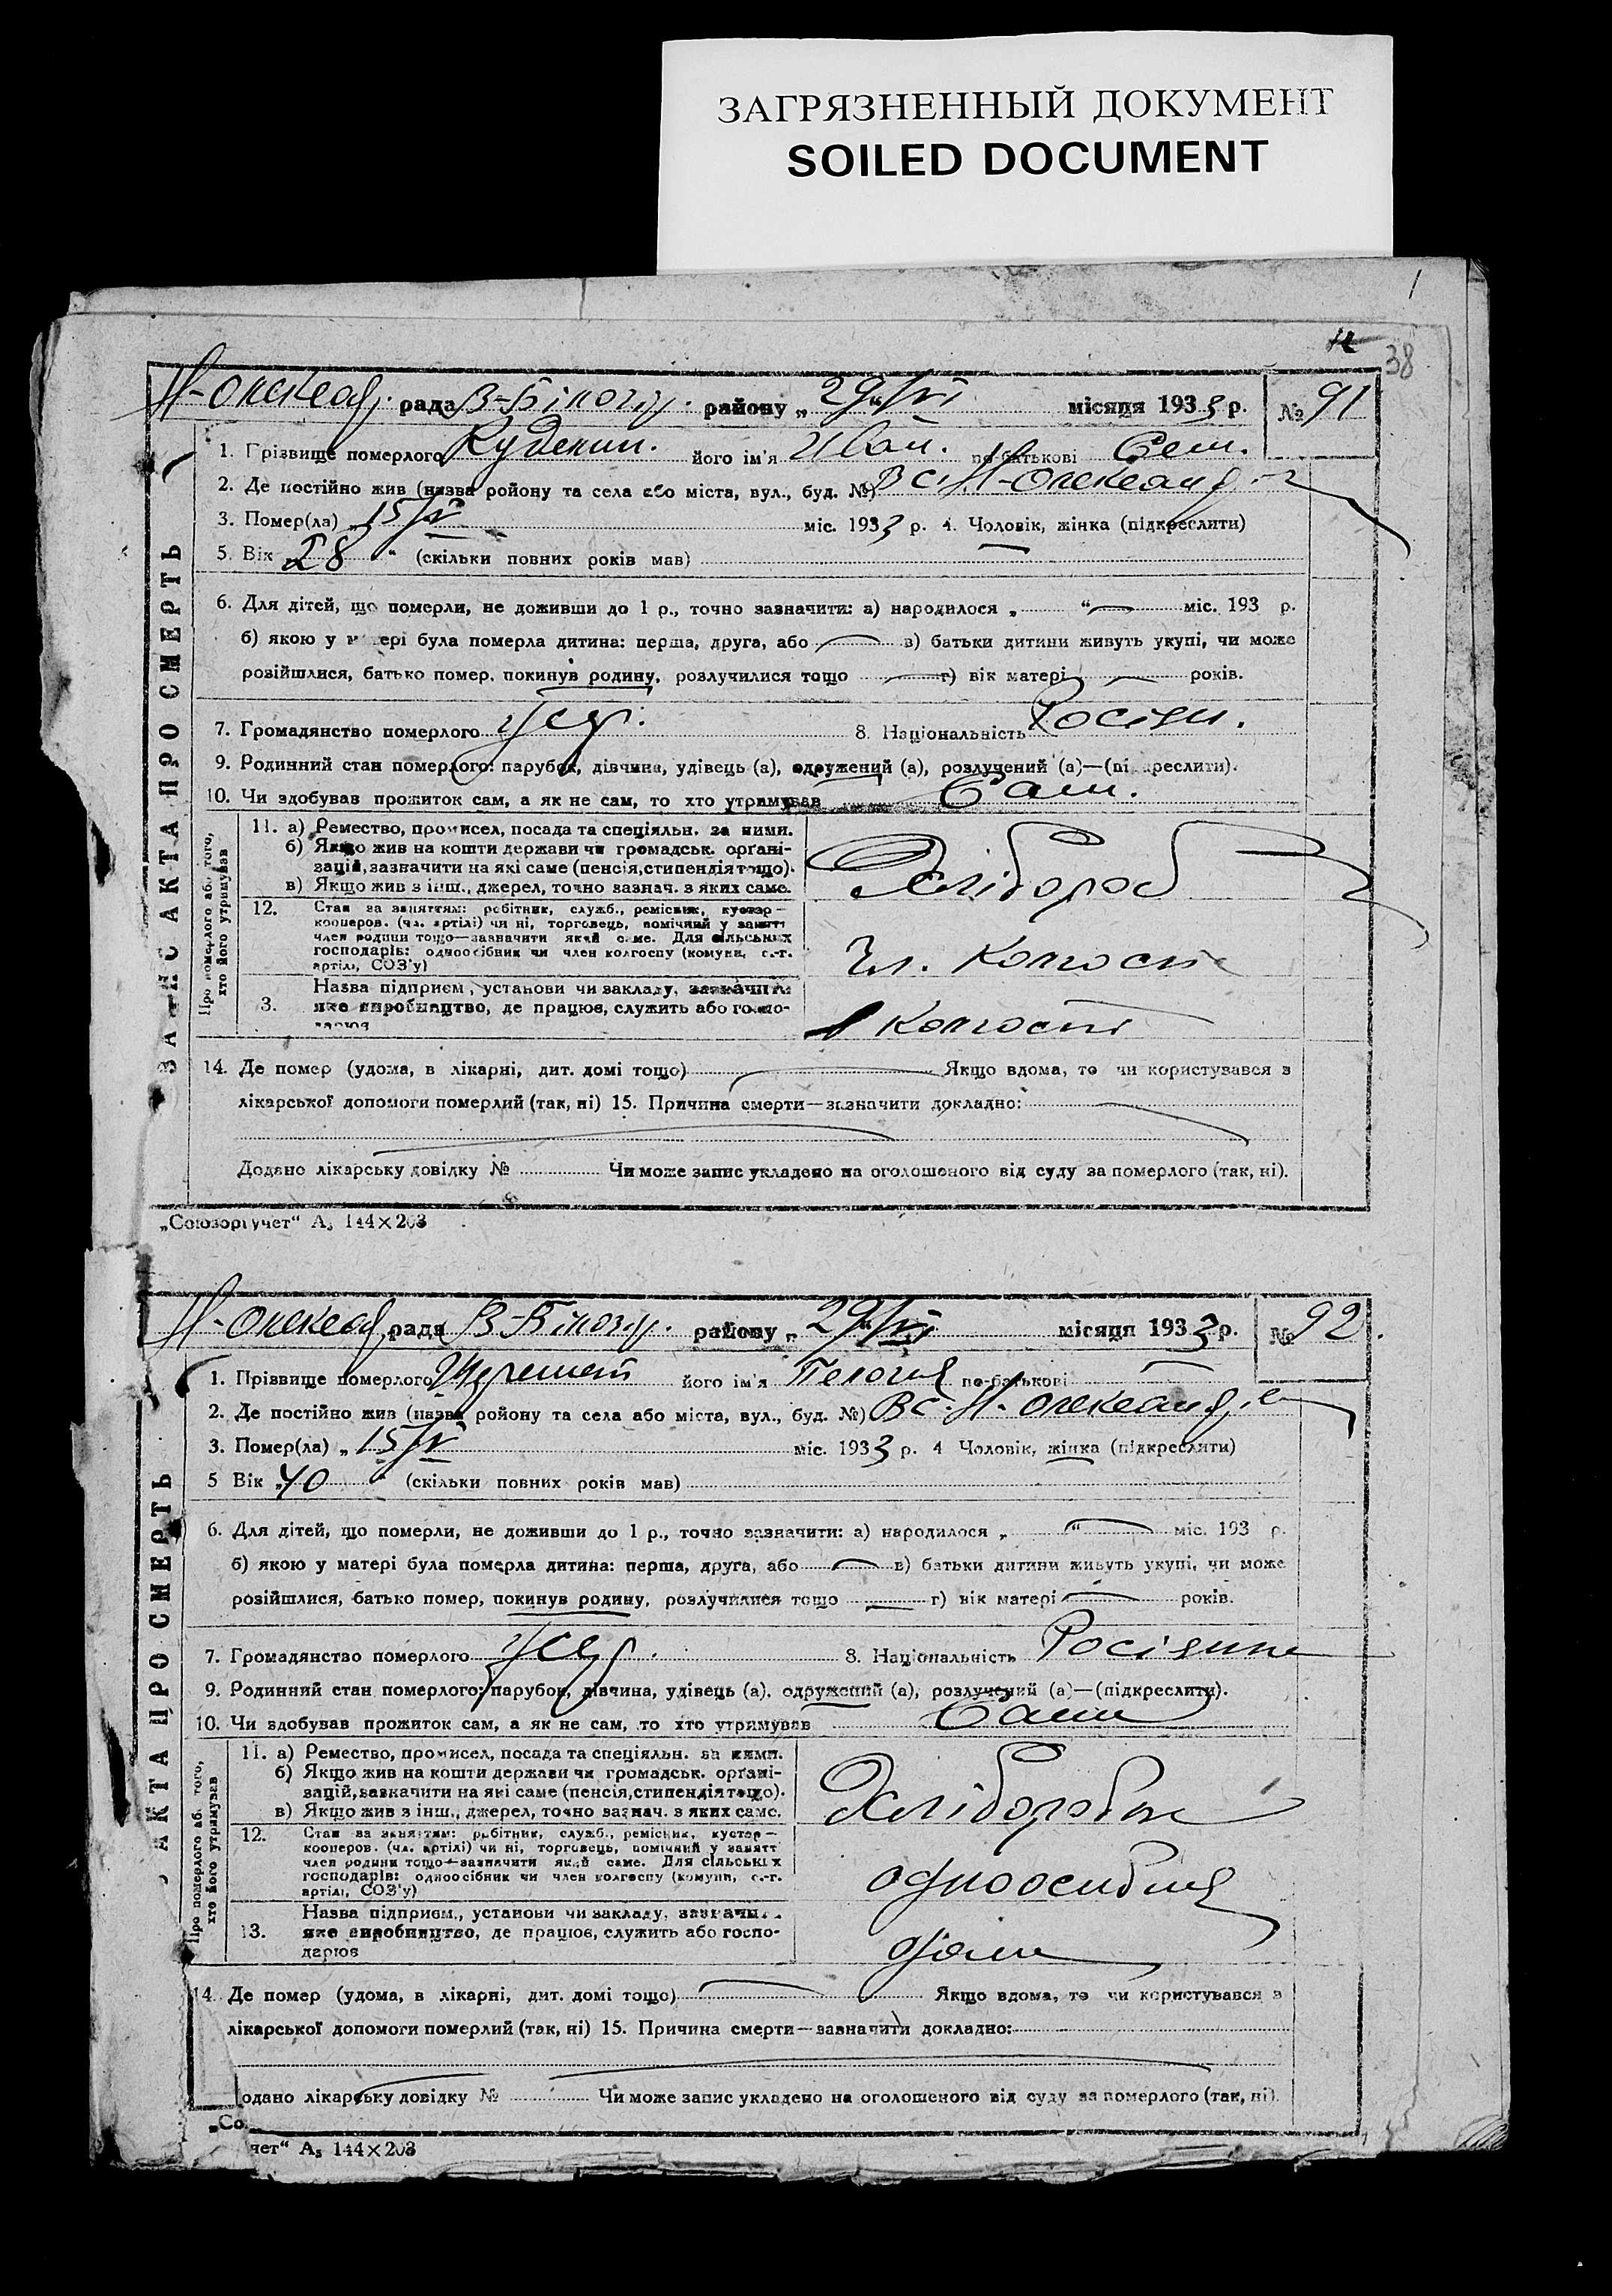 ЗАГРЯЗНЕННЫЙ ДОКУМЕНТ
SOILED DOCUMENT
38
Н-Олександ. рада В-Білозер. району „29/VI“ місяця 1933 р. № 91
ЗАПИС АКТА ПРО СМЕРТЬ
1. Прізвище померлого його ім'я Иван. по-батькові Сем.
2. Де постійно жив (назва ройону та села або міста, вул., буд. №) В с. Н-Олександ.
3. Помер(ла) „15/V міс. 1933 р. 4. Чоловік, жінка (підкреслити)
5. Вік 28 “ (скільки повних років мав)
6. Для дітей, що померли, не доживши до 1 р., точно зазначити: а) народилося „ “ міс. 193 р.
б) якою у матері була померла дитина: перша, друга, або в) батьки дитини живуть укупі, чи може
розійшлися, батько помер, покинув родину, розлучилися тощо г) вік матері років.
7. Громадянство померлого 8. Національність Росіян.
9. Родинний стан померлого: парубок, дівчина, удівець (а), одружений (а), розлучений (а)—(підкреслити).
10. Чи здобував прожиток сам, а як не сам, то хто утримував Сам.
Про померлого або того, хто його утримував
11. а) Ремество, промисел, посада та спеціяльн. за ними.
б) Якщо жив на кошти держави чи громадськ. орґані-
зацій, зазначити на які саме (пенсія, стипендія тощо).
в) Якщо жив з інш., джерел, точно зазнач. з яких саме.
Хлібороб
12. Стан за заняттям: робітник, служб., ремісник, кустар—
кооперов. (чл. артілі) чи ні, торговець, помічний у занятт
член родини тощо—зазначити який саме. Для сільських
господарів: одноосібник чи член колгоспу (комуни, с.-г.
артілі, СОЗ'у)
Чл. колгоспу
Назва підприєм., установи чи закладу, зазначити
13. яке виробництво, де працює, служить або госпо-
дарює
В колгоспі
14. Де помер (удома, в лікарні, дит. домі тощо) Якщо вдома, то чи користувався з
лікарської допомоги померлий (так, ні) 15. Причина смерти—зазначити докладно:
Додано лікарську довідку № Чи може запис укладено на оголошеного від суду за померлого (так, ні).
„Союзоргучет“ А₅ 144×203
Н-Олександ. рада В-Білозер. району „29/VI“ місяця 1933 р. № 92.
АКТА ПРО СМЕРТЬ
1. Прізвище померлого Шеремет його ім'я Пелогия по-батькові
2. Де постійно жив (назва ройону та села або міста, вул., буд. №) В с. Н-Олександ.
3. Помер(ла) „15/V міс. 1933 р. 4 Чоловік, жінка (підкреслити)
5 Вік „40 “ (скільки повних років мав)
6. Для дітей, що померли, не доживши до 1 р., точно зазначити: а) народилося „ “ міс. 193 р.
б) якою у матері була померла дитина: перша, друга, або в) батьки дитини живуть укупі, чи може
розійшлися, батько помер, покинув родину, розлучилися тощо г) вік матері років.
7. Громадянство померлого 8. Національність Росіянка
9. Родинний стан померлого: парубок, дівчина, удівець (а), одружений (а), розлучений (а)—(підкреслити).
10. Чи здобував прожиток сам, а як не сам, то хто утримував Сама
Про померлого або того, хто його утримував
11. а) Ремество, промисел, посада та спеціяльн. за ними.
б) Якщо жив на кошти держави чи громадськ. орґані-
зацій, зазначити на які саме (пенсія, стипендія тощо).
в) Якщо жив з інш., джерел, точно зазнач. з яких саме.
Хліборобка
12. Стан за заняттям: робітник, служб., ремісник, кустар—
кооперов. (чл. артілі) чи ні, торговець, помічний у занятт
член родини тощо—зазначити який саме. Для сільських
господарів: одноосібник чи член колгоспу (комуни, с.-г.
артілі, СОЗ'у)
Назва підприєм., установи чи закладу, зазначи
13. яке виробництво, де працює, служить або госпо-
дарює
14. Де помер (удома, в лікарні, дит. домі тощо) Якщо вдома, то чи користувався з
лікарської допомоги померлий (так, ні) 15. Причина смерти—зазначити докладно:
одано лікарську довідку № Чи може запис укладено на оголошеного від суду за померлого (так, ні).
„Со
чет“ А₅ 144×203